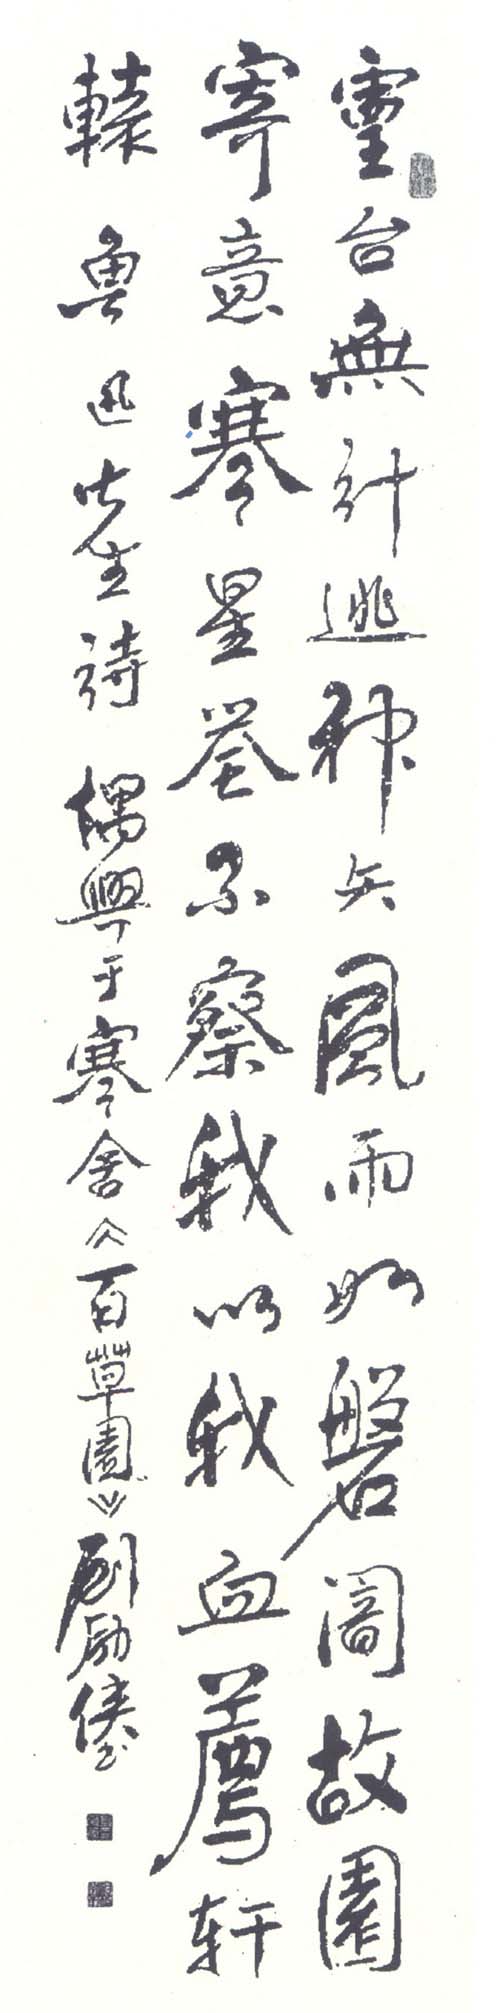 靈台無計逃神矢風雨如磐闇故園
寄意寒星荃不察我以我血薦轩
轅 魯迅先生詩 偶興于寒舍《百草園》